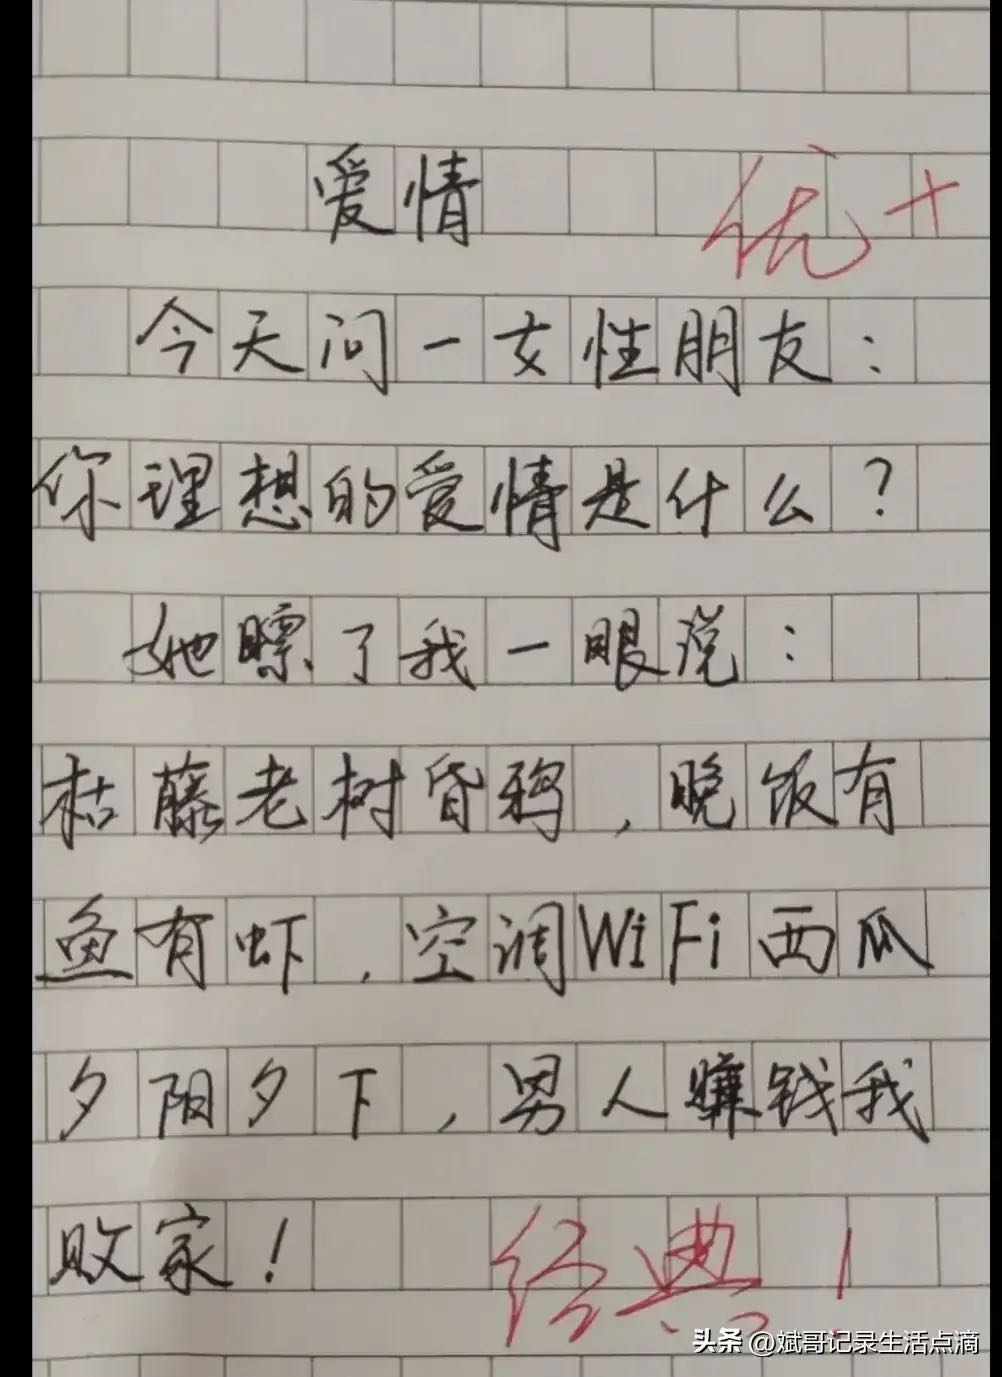 爱情
优+
今天问一女性朋友：
你理想的爱情是什么？
她瞟了我一眼说：
枯藤老树昏鸦，晚饭有
鱼有虾，空调WiFi西瓜
夕阳夕下，男人赚钱我
败家！
经典！
头条@斌哥记录生活点滴